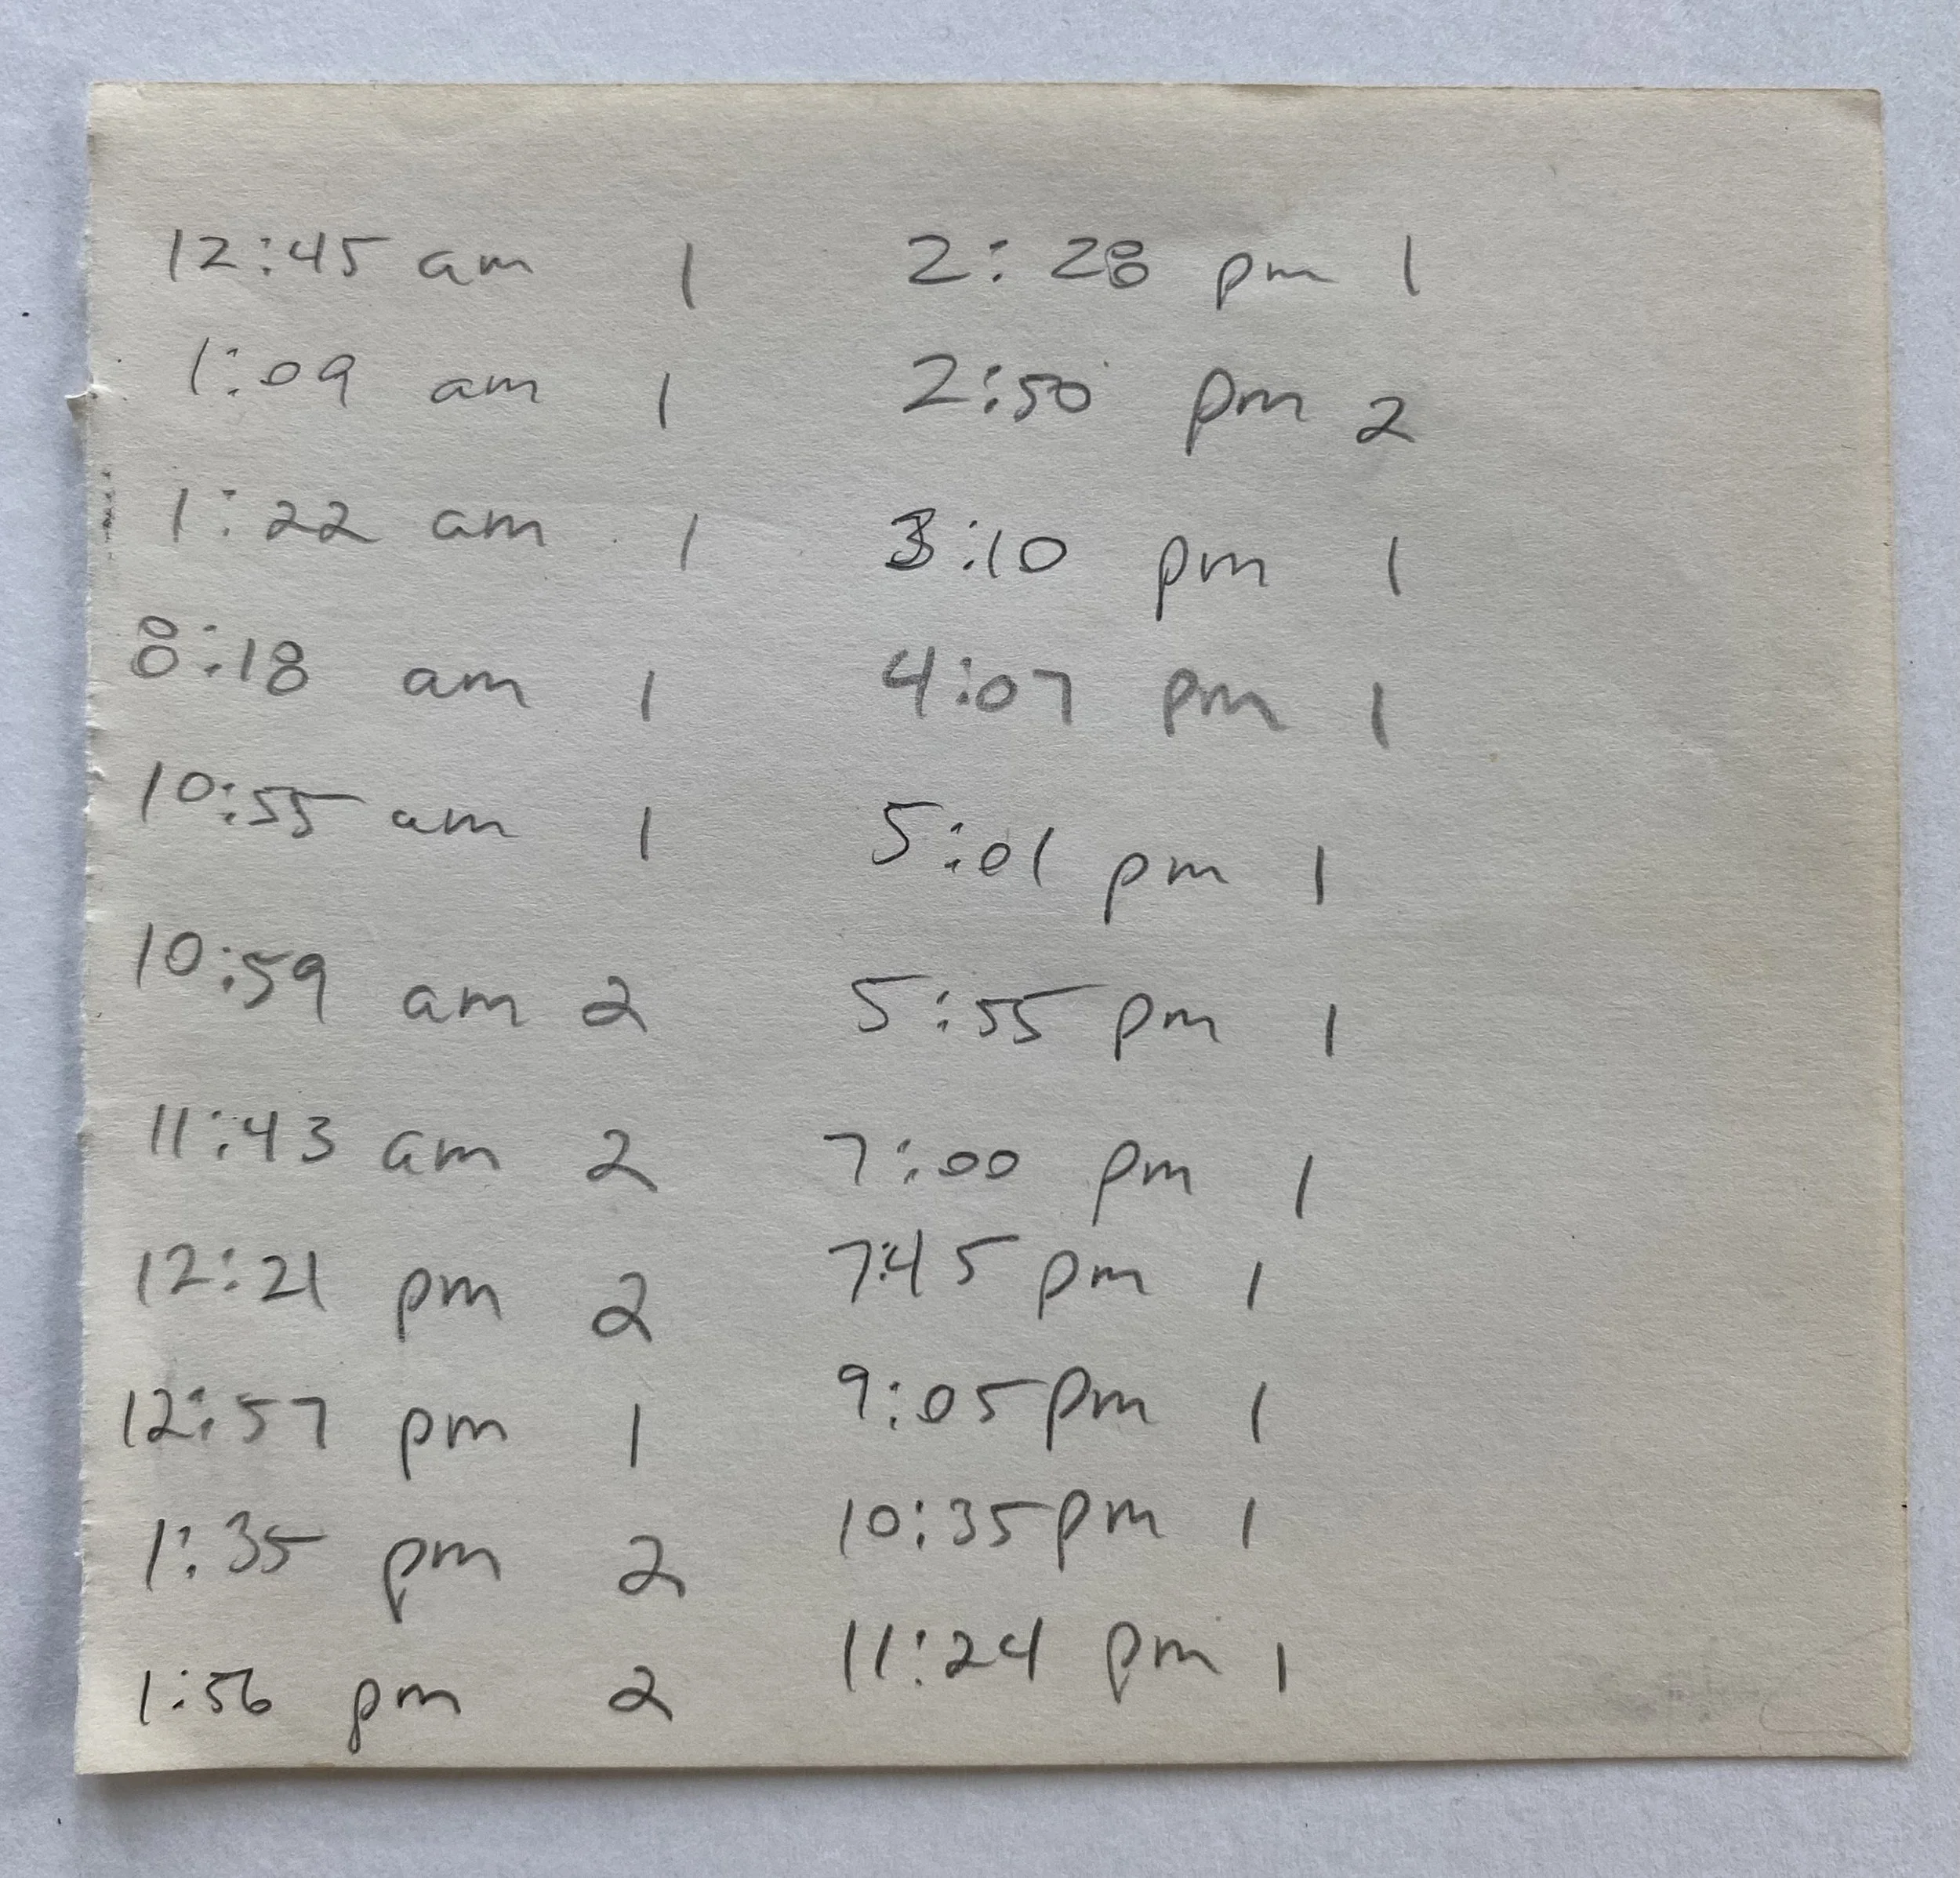 12:45 am 1
1:09 am 1
1:22 am 1
8:18 am 1
10:55 am 1
10:59 am 2
11:43 am 2
12:21 pm 2
12:57 pm 1
1:35 pm 2
1:56 pm 2
2:28 pm 1
2:50 pm 2
3:10 pm 1
4:07 pm 1
5:01 pm 1
5:55 pm 1
7:00 pm 1
7:45 pm 1
9:05 pm 1
10:35 pm 1
11:24 pm 1